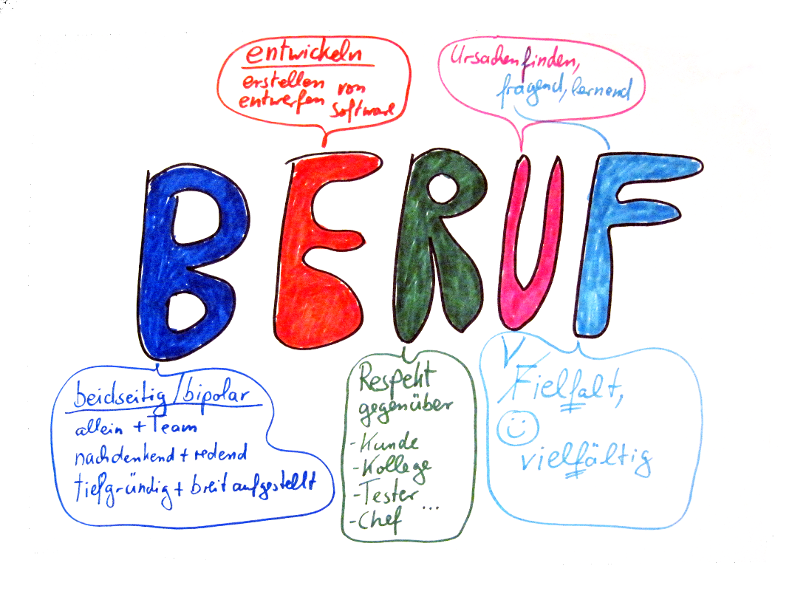 entwickeln
erstellen von
entwerfen Software
Ursachen finden,
fragend, lernend
BERUF
beidseitig/bipolar
allein + Team
nachdenkend + redend
tiefgründig + breit aufgestellt
Respekt
gegenüber
- Kunde
- Kollege
- Tester
- Chef ...
V
Fielfalt,
vielfältig